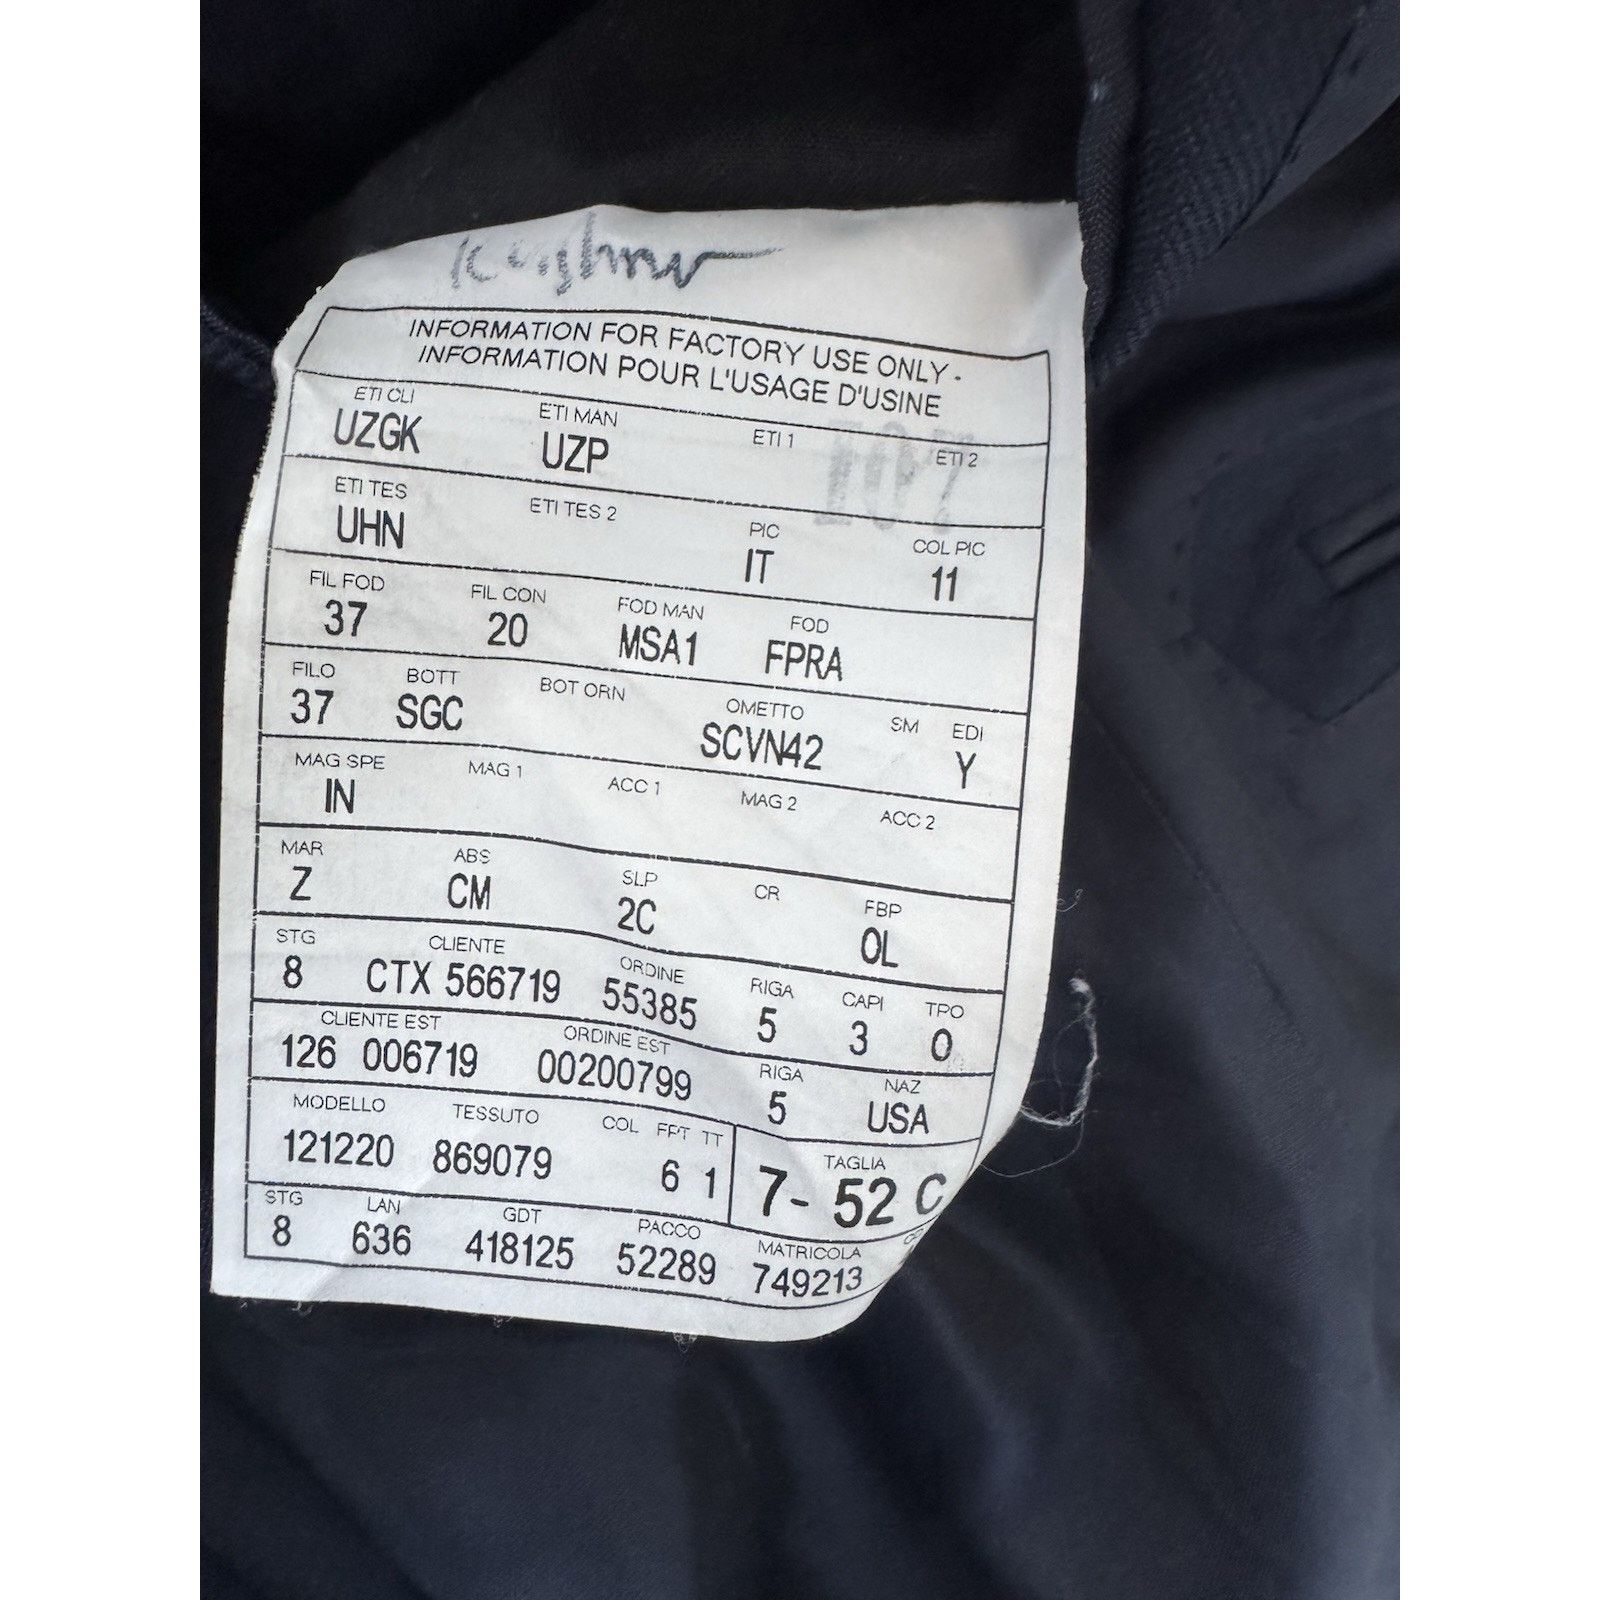 INFORMATION FOR FACTORY USE ONLY -
INFORMATION POUR L'USAGE D'USINE
ETI CLI ETI MAN ETI 1 ETI 2
UZGK UZP
ETI TES ETI TES 2 PIC COL PIC
UHN IT 11
FIL FOD FIL CON FOD MAN FOD
37 20 MSA1 FPRA
FILO BOTT BOT ORN OMETTO SM EDI
37 SGC SCVN42 Y
MAG SPE MAG 1 ACC 1 MAG 2 ACC 2
IN
MAR ABS SLP CR FBP
Z CM 2C OL
STG CLIENTE ORDINE RIGA CAPI TPO
8 CTX 566719 55385 5 3 0
CLIENTE EST ORDINE EST RIGA NAZ
126 006719 00200799 5 USA
MODELLO TESSUTO COL FPT TT TAGLIA
121220 869079 6 1 7- 52 C
STG LAN GDT PACCO MATRICOLA
8 636 418125 52289 749213